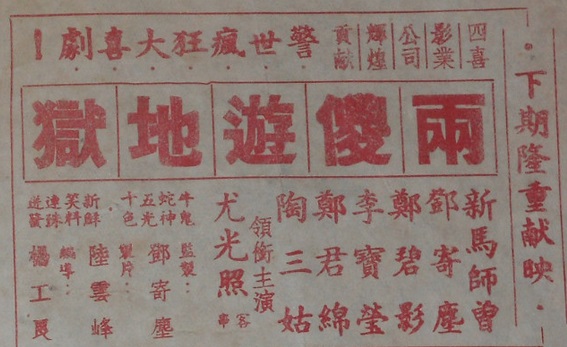 下期隆重献映
四喜影業公司輝煌貢献
警世瘋狂大喜劇！
兩傻遊地獄
新馬師曾
鄧寄塵
鄭碧影
李寶瑩
鄭君綿
陶三姑
領銜主演
尤光照
客串
牛鬼蛇神
五光十色
監製：
製片：
鄧寄塵
新鮮笑料
連珠迸發
編導：
陸雲峰
楊工良